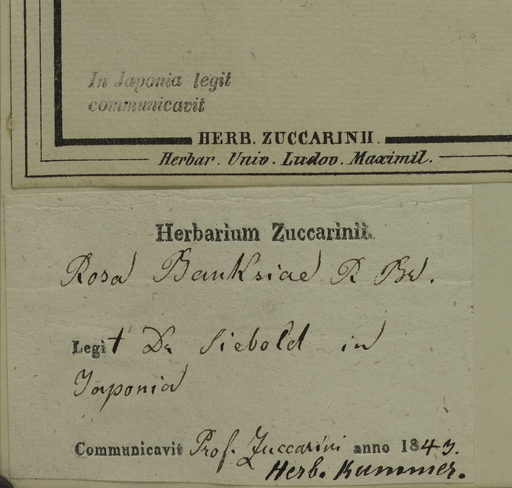 In Japonia legit
communicavit
HERB. ZUCCARINII.
Herbar. Univ. Ludov. Maximil.
Herbarium Zuccarinii.
Rosa Banksiae R Br.
Legit Dr Siebold in
Japonia
Communicavit Prof. Zuccarini anno 1843.
Herb. Kummer.